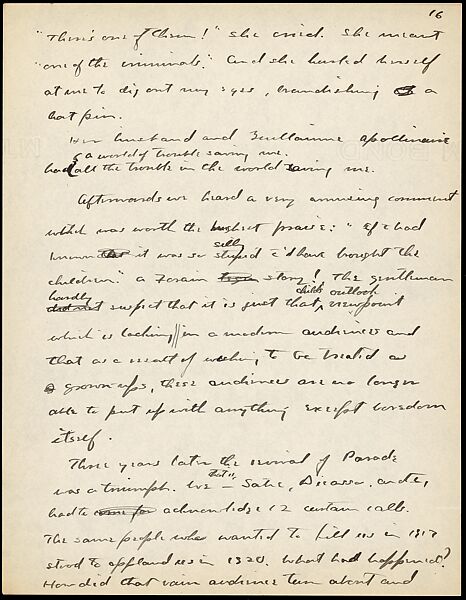 16
"There's one of them!" she cried. She meant
"one of the criminals." And she hurled herself
at me to dig out my eyes, brandishing a
hat pin.
Her husband and Guillaume Apollinaire
a world of trouble saving me.
had all the trouble in the world saving me.
Afterwards we heard a very amusing comment
which was worth the highest praise: "If I had
silly
known that it was so stupid I'd have brought the
children." A Forain story! The gentleman
hardly child's outlook
did not suspect that it is just that viewpoint
which is lacking in a modern audience and
that as a result of wishing to be treated as
grown-ups, these audiences are no longer
able to put up with anything except boredom
itself.
Three years later the revival of Parade
that is,
was a triumph. We – Satie, Picasso, and I,
had to come for acknowledge 12 curtain calls.
The same people who wanted to kill us in 1917
stood to applaud us in 1920. What had happened?
How did that vain audience turn about and